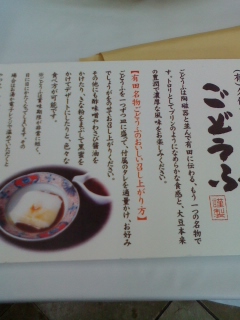 ごどうふ
謹製
ごどうふは陶磁器と並んで有田に伝わる、もう一つの名物で
す。トロリとしてプリンのようになめらかな食感と、大豆本来
の豊潤で濃厚な風味をお楽しみください。
【有田名物ごどうふのおいしい召し上がり方】
ごどうふを一つずつ皿に盛って、付属のタレを適量かけ、お好み
でしょうがをのせてお召し上がりください。
その他にも酢味噌やわさび醤油を
かけたり、きな粉をまぶして黒蜜を
かけてデザートにしたりと、色々な
食べ方が可能です。